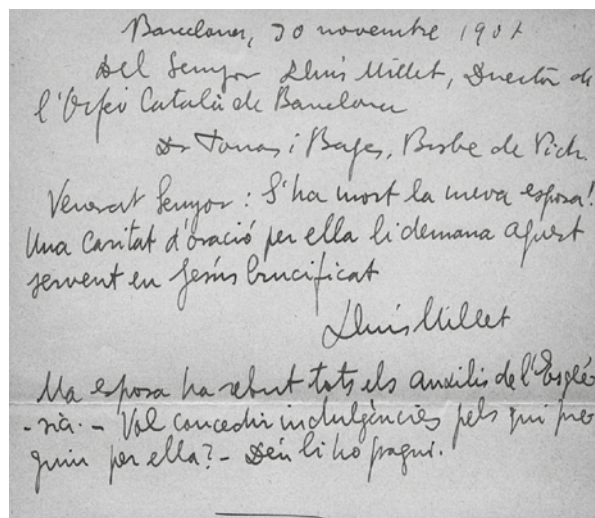 Barcelona, 30 novembre 1907
Del Senyor Lluís Millet, Director de
l'Orfeó Català de Barcelona
Dr Torras i Bages, Bisbe de Vich.
Venerat Senyor: S'ha mort la meva esposa!
Una caritat d'oració per ella li demana aquest
servent en Jesús Crucificat
Lluís Millet
Ma esposa ha rebut tots els auxilis de l'Esglé-
-sia. - Vol concedir indulgències pels qui pre-
guin per ella? - Déu li ho pagui.